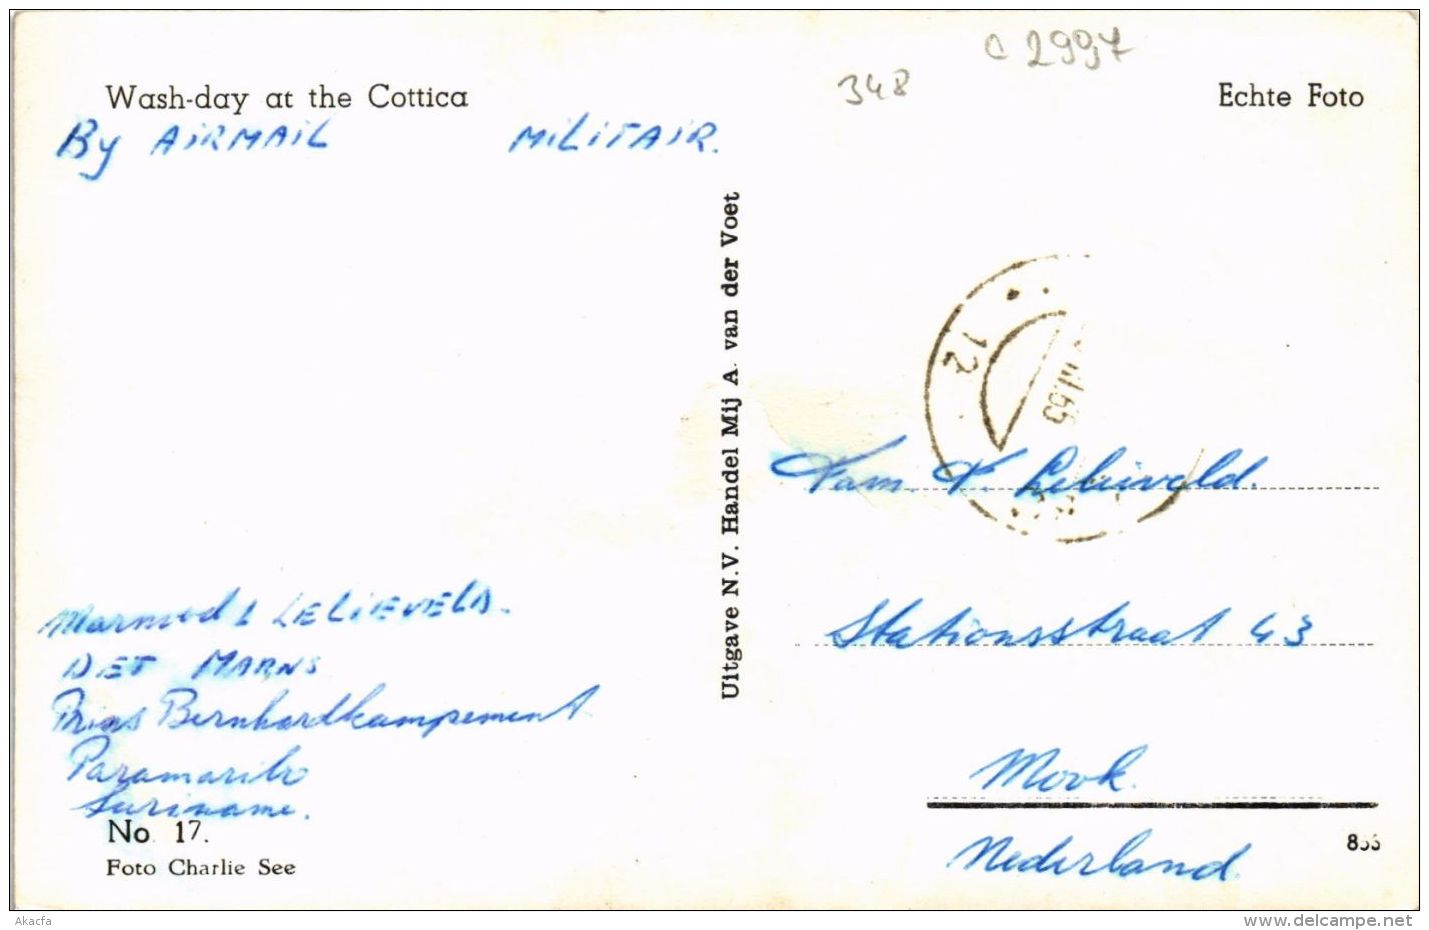 c 2997
348
Wash-day at the Cottica
Echte Foto
By AiRMAiL MiLiTAiR.
Uitgave N.V. Handel Mij A. van der Voet
12
65
Fam. Lelieveld.
Stationsstraat 43
Mook.
Nederland.
LELIEVELD.
DET MARNS
Prins Bernhardkampement
Paramaribo
Suriname.
No 17.
Foto Charlie See
Akacfa
www.delcampe.net